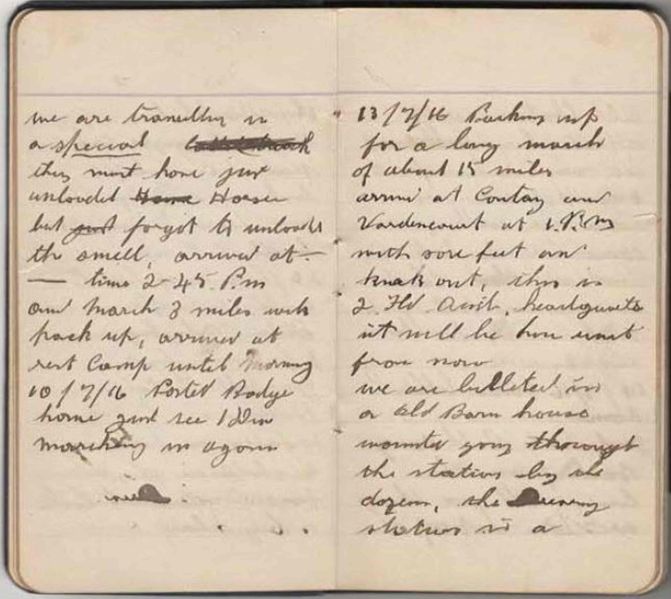 we are travelling in
a special
they must have just
unloaded Home Horses
but just forgot to unload
the smell, arrived at —
— time 2-45 P.m
and march 3 miles with
pack up, arrived at
rest Camp until morning
10/7/16 Posted Badge
home just see 1 Div
marching in again
13/7/16 Packing up
for a long march
of about 15 miles
arrived at Contay and
Vardencourt at 1.P.m
with sore feet and
knock out, this is
2 Fld Amb, headquarters
it will be our unit
from now
we are billeted in
a old Barn house
wounded going through
the station by the
dozens, the
station is a